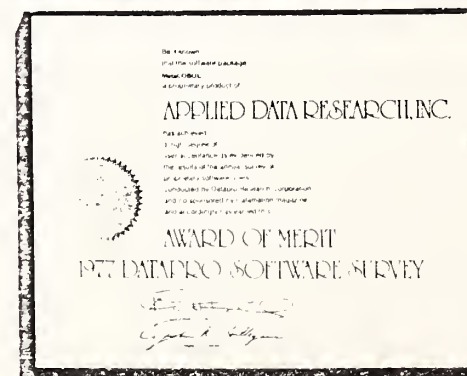 Be it known
that the software package
MetaCOBOL
a proprietary product of
APPLIED DATA RESEARCH, INC.
has achieved
a high degree of
user acceptance as evidenced by
the results of the annual survey of
proprietary software users
conducted by Datapro Research Corporation
and co-sponsored by Datamation magazine
and accordingly has earned this
AWARD OF MERIT
1977 DATAPRO SOFTWARE SURVEY